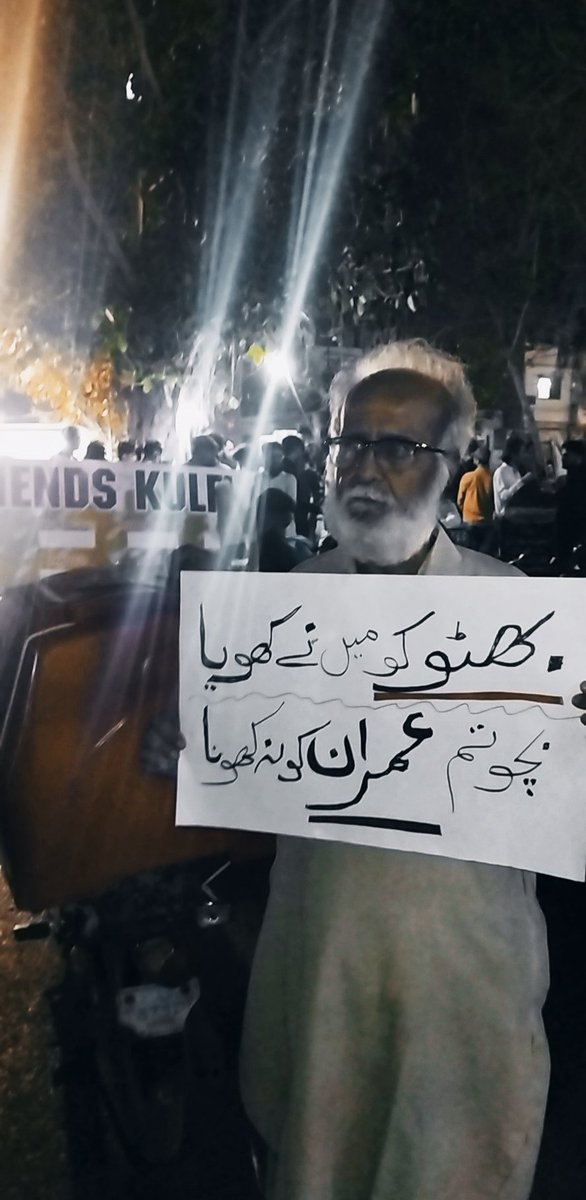 IENDS KULF
بھٹو کو میں نے کھویا
بچو تم عمران کو نہ کھونا